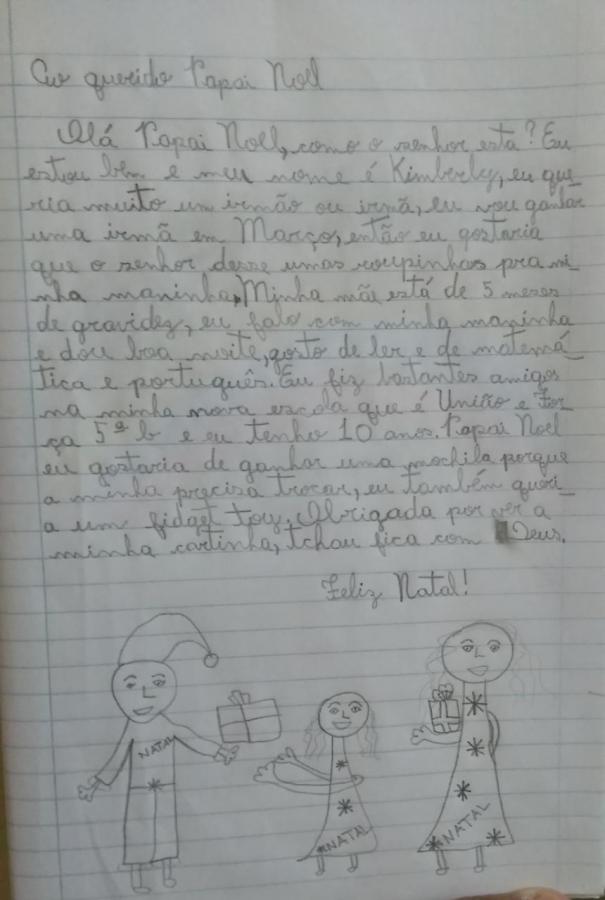 Ao querido Papai Noel
Olá Papai Noel, como o senhor está? Eu
estou bem e meu nome é Kimberly, eu que
ria muito um irmão ou irmã, eu vou ganhar
uma irmã em Março, então eu gostaria
que o senhor desse umas roupinhas pra mi
nha maninha, Minha mãe está de 5 meses
de gravidez, eu falo com minha maninha
e dou boa noite, gosto de ler e de matemá
tica e português. Eu fiz bastantes amigos
na minha nova escola que é União e For
ça 5ª b e eu tenho 10 anos. Papai Noel
eu gostaria de ganhar uma mochila porque
a minha precisa trocar, eu também queri
a um fidget toy. Obrigada por ver a
minha cartinha, tchau fica com Deus.
Feliz Natal!
NATAL
NATAL
NATAL